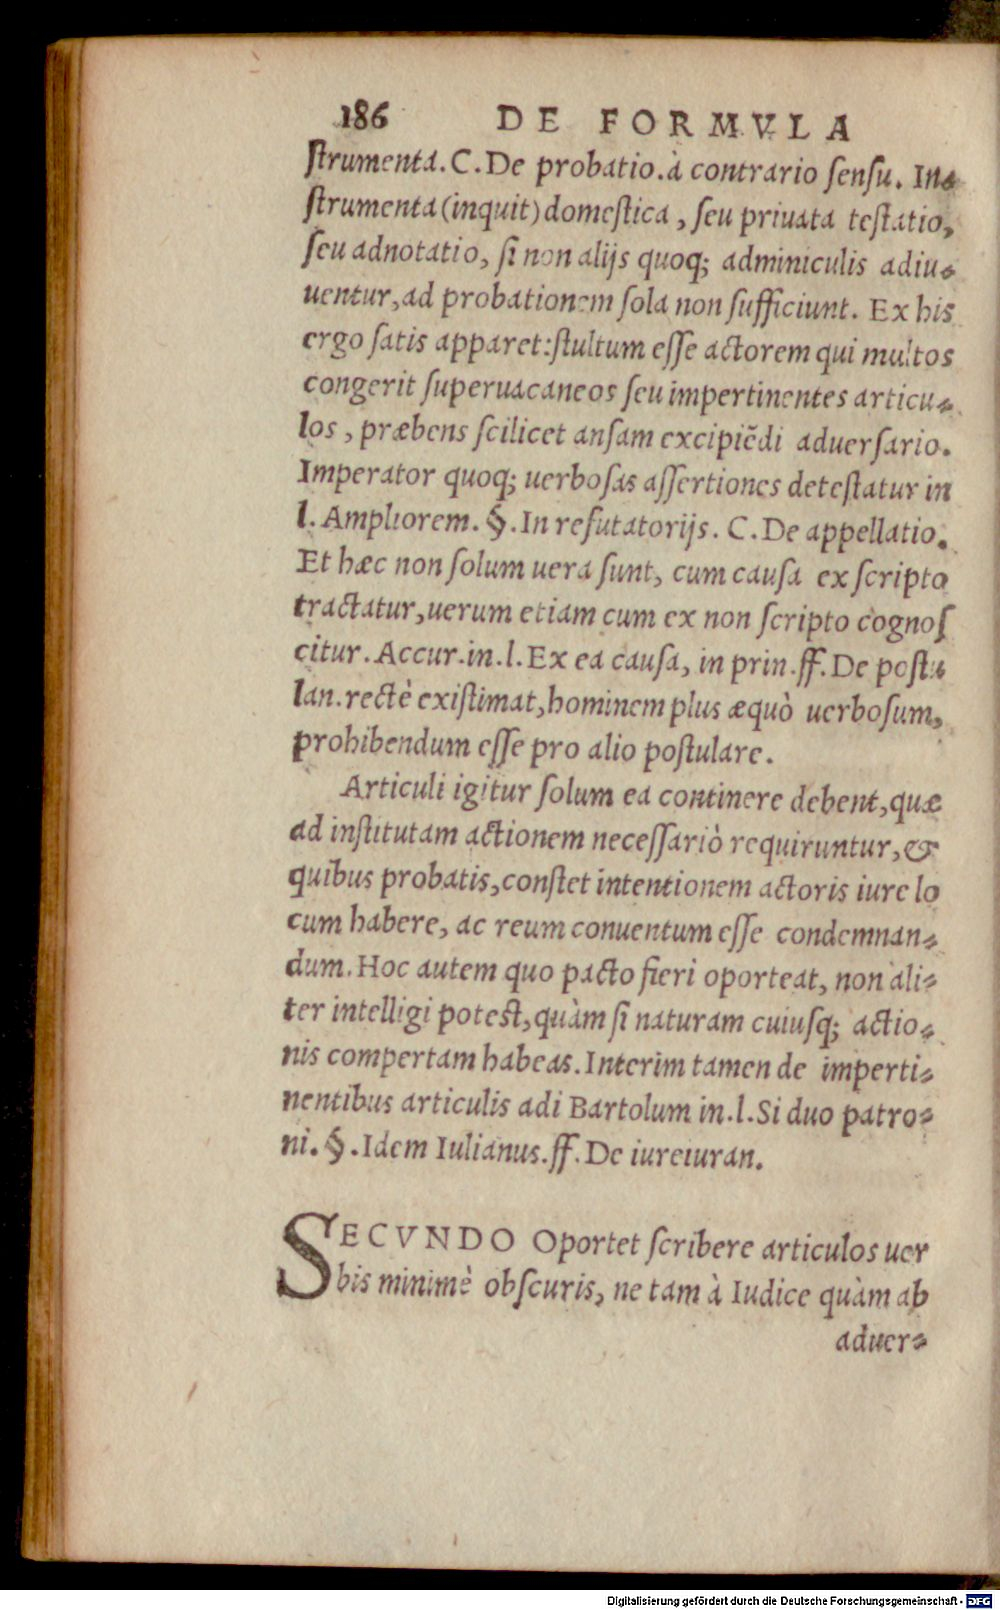 186 DE FORMVLA
ſtrumenta. C. De probatio. à contrario ſenſu. In-
ſtrumenta (inquit) domeſtica, ſeu priuata teſtatio,
ſeu adnotatio, ſi non alijs quoq; adminiculis adiu-
uentur, ad probationem ſola non ſufficiunt. Ex his
ergo ſatis apparet: ſtultum eſſe actorem qui multos
congerit ſuperuacaneos ſeu impertinentes articu-
los, præbens ſcilicet anſam excipiẽdi aduerſario.
Imperator quoq; uerboſas aſſertiones deteſtatur in
l. Ampliorem. §. In refutatorijs. C. De appellatio.
Et hæc non ſolum uera ſunt, cum cauſa ex ſcripto
tractatur, uerum etiam cum ex non ſcripto cognoſ
citur. Accur. in. l. Ex ea cauſa, in prin. ff. De poſtu-
lan. rectè exiſtimat, hominem plus æquò uerboſum,
prohibendum eſſe pro alio poſtulare.
Articuli igitur ſolum ea continere debent, quæ
ad inſtitutam actionem neceſſariò requiruntur, &
quibus probatis, conſtet intentionem actoris iure lo
cum habere, ac reum conuentum eſſe condemnan-
dum. Hoc autem quo pacto fieri oporteat, non ali-
ter intelligi poteſt, quàm ſi naturam cuiuſq; actio-
nis compertam habeas. Interim tamen de imperti-
nentibus articulis adi Bartolum in. l. Si duo patro-
ni. §. Idem Iulianus. ff. De iureiuran.
SECVNDO Oportet ſcribere articulos uer
bis minimè obſcuris, ne tam à Iudice quàm ab
aduer-
Digitalisierung gefördert durch die Deutsche Forschungsgemeinschaft - DFG